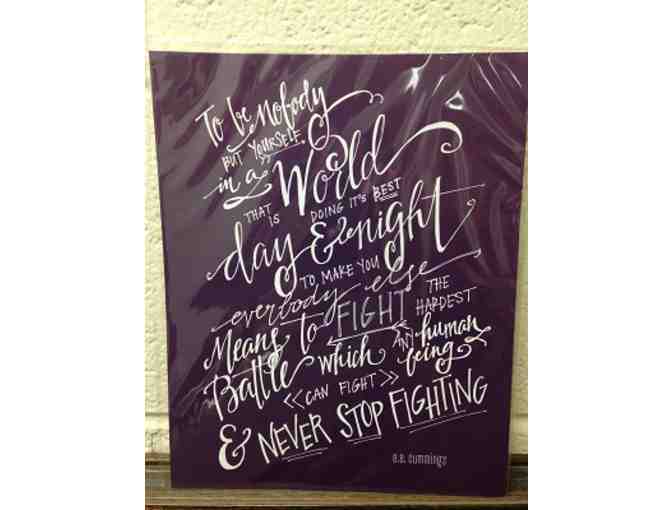 To be nobody
BUT YOURSELF.
in a World
THAT IS DOING IT'S BEST
day & night
TO MAKE YOU
everybody else
Means to FIGHT THE HARDEST
Battle which ANY human being
<<CAN FIGHT>>
& NEVER STOP FIGHTING
e.e. cummings